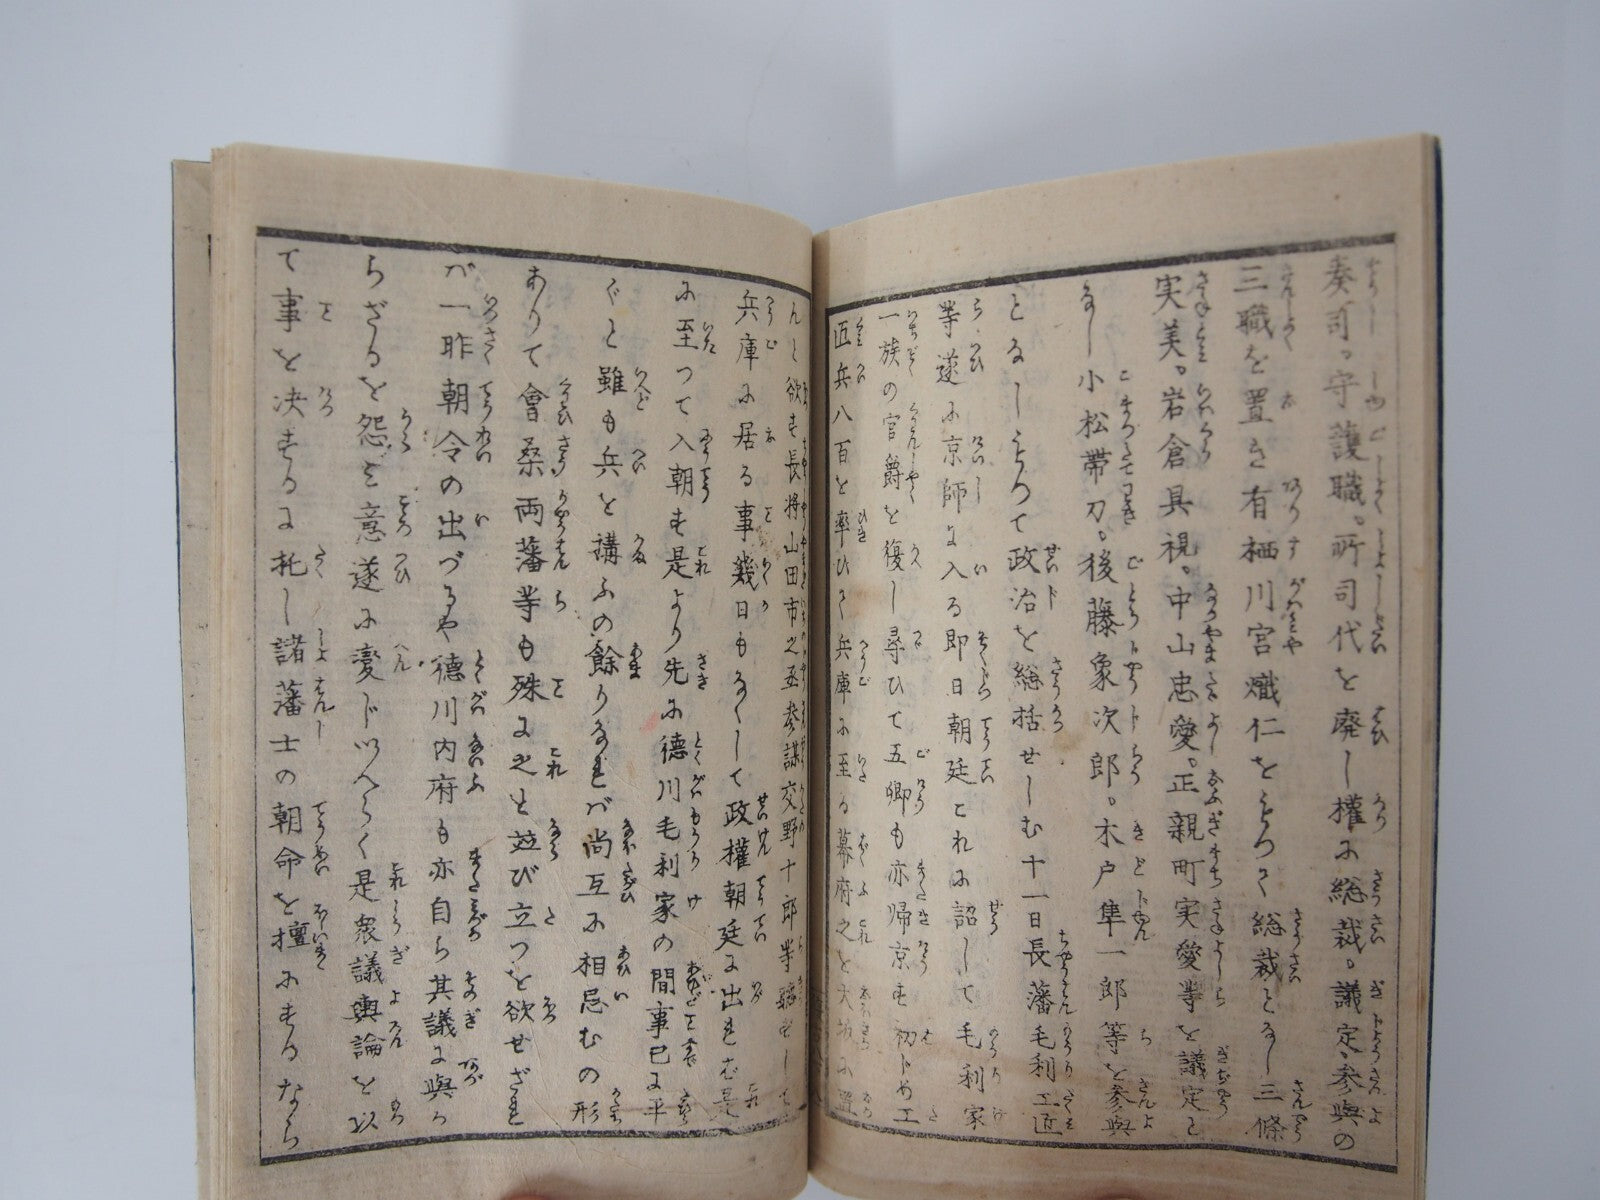 奏司。守護職。所司代を廃し權に総裁。議定、参與の
三職を置き有栖川宮熾仁をもつて総裁となし三條
実美。岩倉具視。中山忠愛。正親町実愛等を議定と
なし小松帯刀。後藤象次郎。木戸隼一郎等を参與
となしもつて政治を総括せしむ十一日長藩毛利工匠
等遂に京師に入る即日朝廷これに詔して毛利家
一族の官爵を復し尋ひて五卿も亦帰京す初め工
匠兵八百を率ひて兵庫に至る幕府之を大坂に置
んと欲す長將山田市之丞参謀交野十郎等聴せして
兵庫に居る事幾日もなくして政權朝廷に出れば是
に至つて入朝す是より先に德川毛利家の間事已に平
ぐと雖も兵を講ふの餘りなれば尚互に相忌むの形
ありて會桑両藩等も殊に之と並び立つを欲せざれ
バ一昨朝令の出づるや德川内府も亦自ら其議に與か
らざるを怨ミ意遂に変じ以らく是衆議輿論を以
て事を决するに托し諸藩士の朝命を擅にするなら